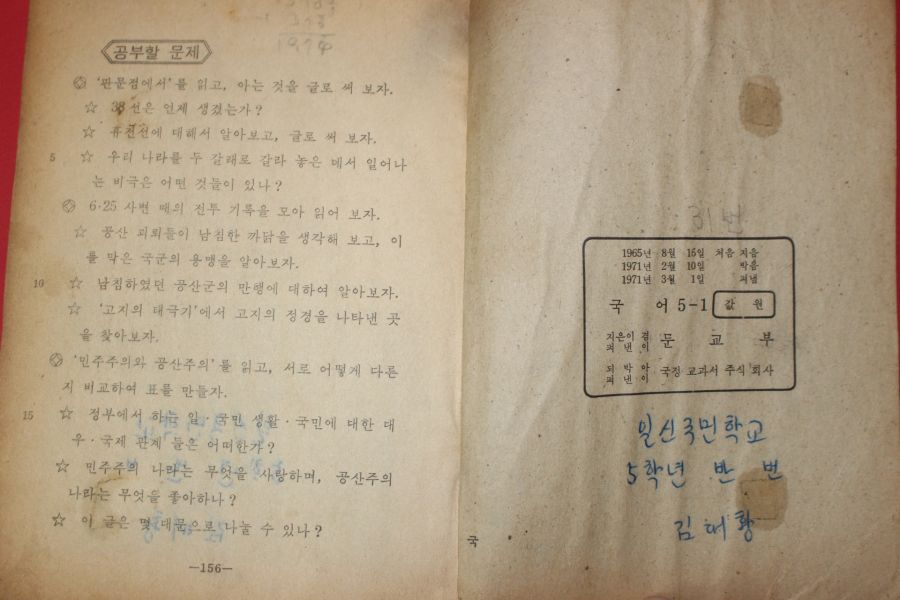 공부할 문제
'판문점에서'를 읽고, 아는 것을 글로 써 보자.
☆ 38선은 언제 생겼는가?
☆ 휴전선에 대해서 알아보고, 글로 써 보자.
5 ☆ 우리 나라를 두 갈래로 갈라 놓은 데서 일어나
는 비극은 어떤 것들이 있나?
6·25 사변 때의 전투 기록을 모아 읽어 보자.
☆ 공산 괴뢰들이 남침한 까닭을 생각해 보고, 이
를 막은 국군의 용맹을 알아보자.
10 ☆ 남침하였던 공산군의 만행에 대하여 알아보자.
☆ '고지의 태극기'에서 고지의 정경을 나타낸 곳
을 찾아보자.
'민주주의와 공산주의'를 읽고, 서로 어떻게 다른
지 비교하여 표를 만들자.
15 ☆ 정부에서 하는 일·국민 생활·국민에 대한 대
우·국제 관계 들은 어떠한가?
☆ 민주주의 나라는 무엇을 사랑하며, 공산주의
나라는 무엇을 좋아하나?
☆ 이 글은 몇 대문으로 나눌 수 있나?
—156—
31번
1965년 8월 15일 처음 지음
1971년 2월 10일 박음
1971년 3월 1일 펴냄
국 어 5-1 값 원
지은이 겸 펴낸이 문 교 부
되박아 펴낸이 국정 교과서 주식 회사
일신국민학교
5학년 반 번
김태황
국